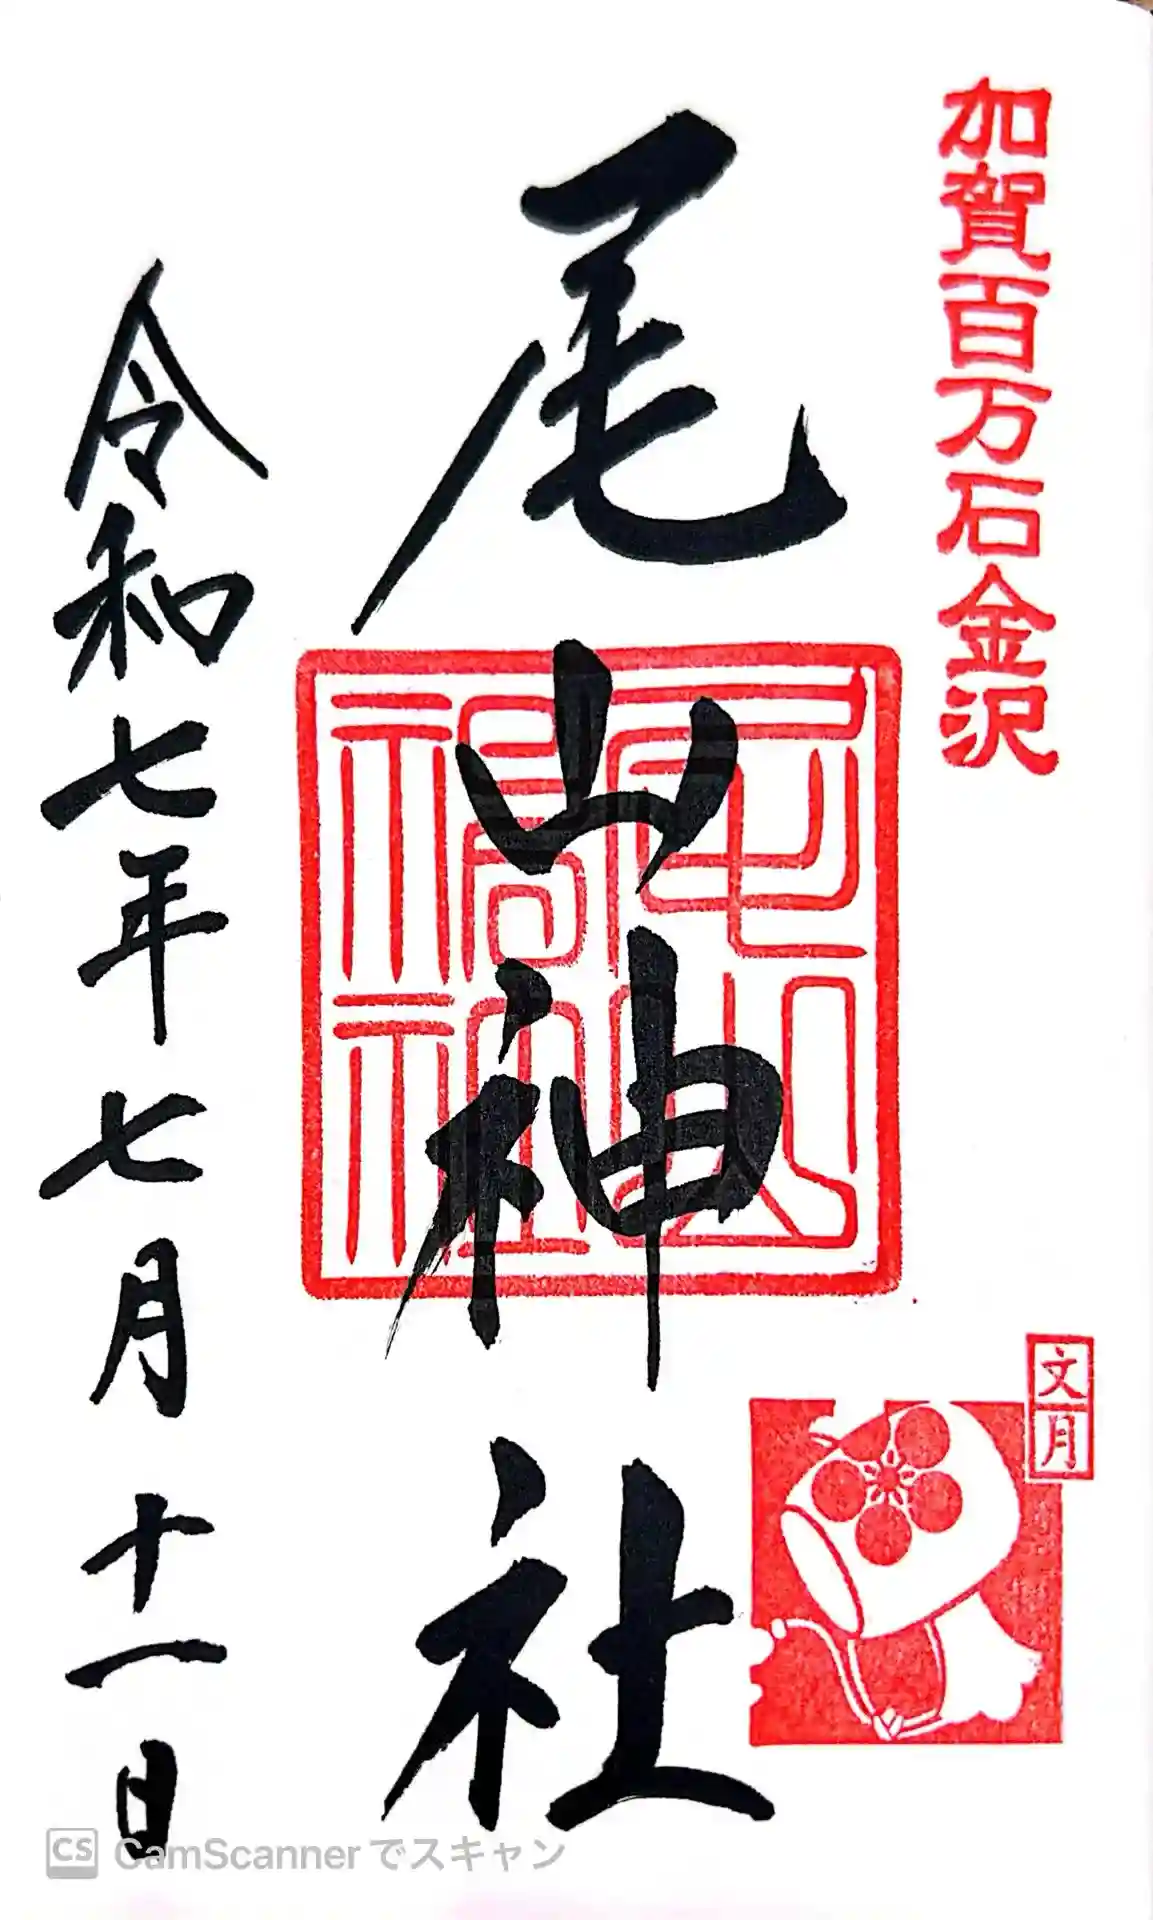 加賀百万石金沢
尾山神社
文月
令和七年七月十一日
CS CamScannerでスキャン